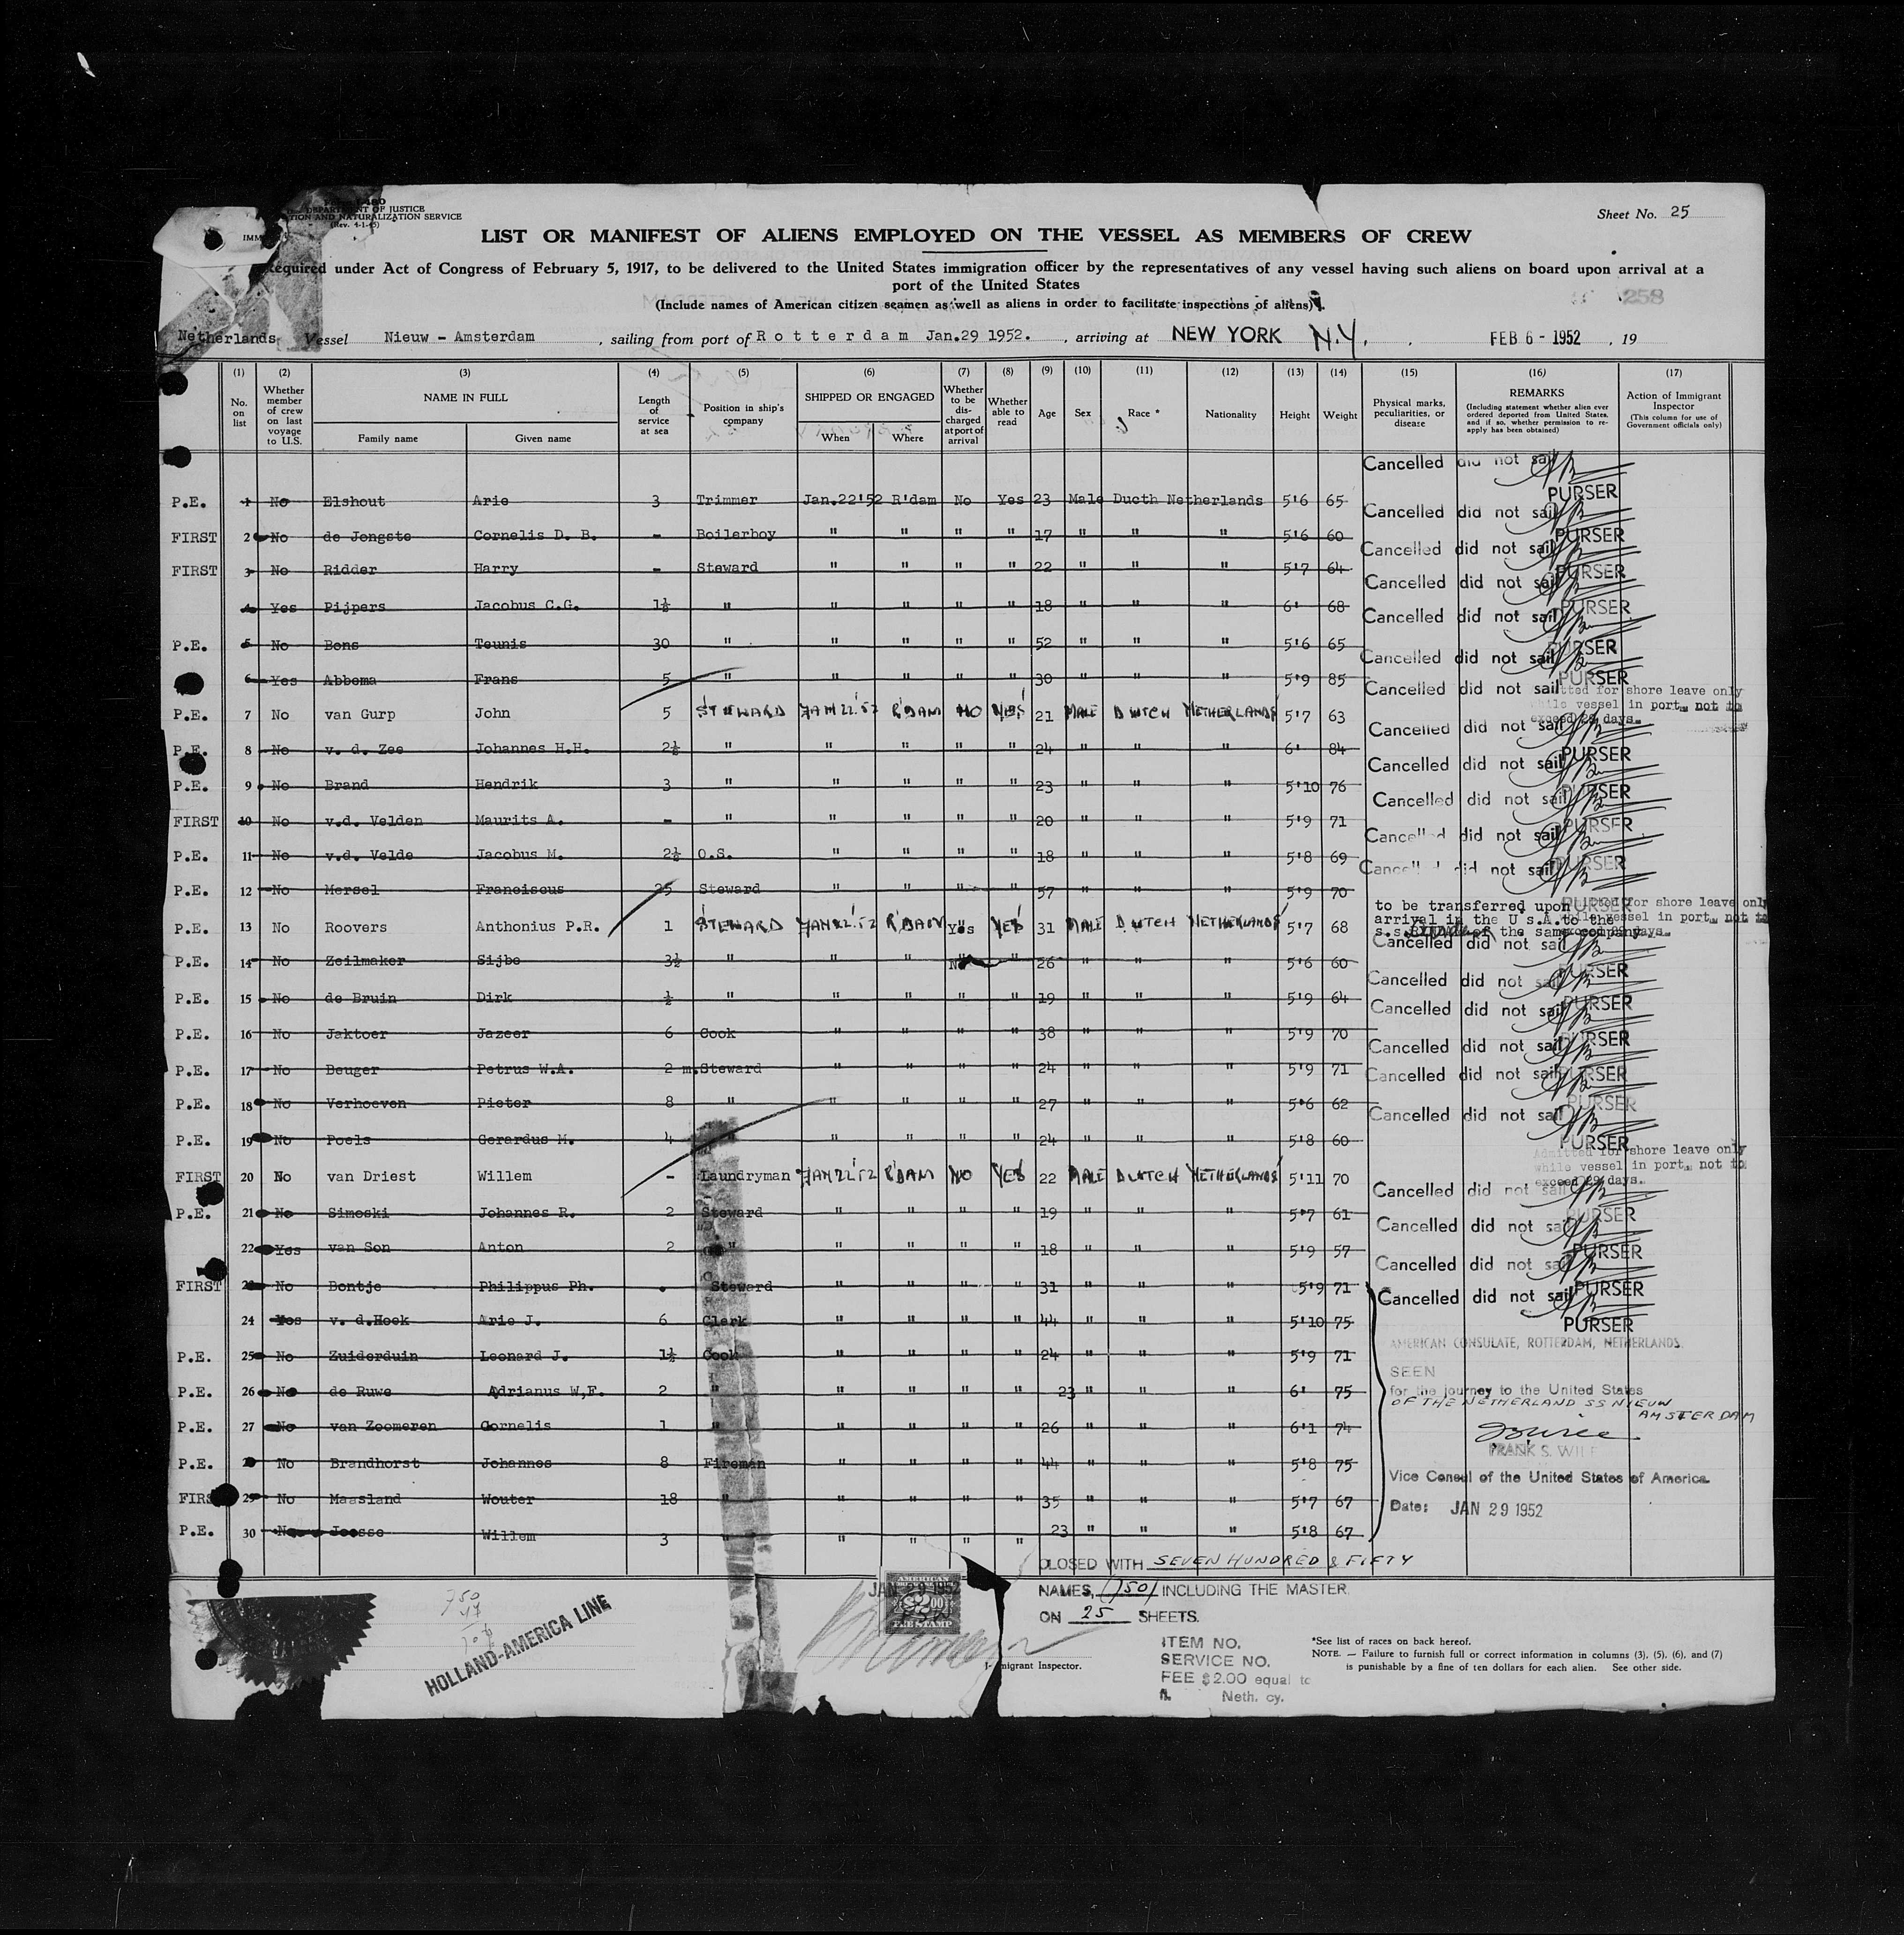 Form I-480
DEPARTMENT OF JUSTICE
IMMIGRATION AND NATURALIZATION SERVICE
(Rev. 4-1-45)
Sheet No. 25
LIST OR MANIFEST OF ALIENS EMPLOYED ON THE VESSEL AS MEMBERS OF CREW
Required under Act of Congress of February 5, 1917, to be delivered to the United States immigration officer by the representatives of any vessel having such aliens on board upon arrival at a
port of the United States
(Include names of American citizen seamen as well as aliens in order to facilitate inspections of aliens)
258
Netherlands Vessel Nieuw - Amsterdam , sailing from port of Rotterdam Jan.29 1952. , arriving at NEW YORK N.Y. , FEB 6 - 1952 , 19
(1) (2) (3) (4) (5) (6) (7) (8) (9) (10) (11) (12) (13) (14) (15) (16) (17)
No. on list
Whether member of crew on last voyage to U.S.
NAME IN FULL
Family name Given name
Length of service at sea
Position in ship's company
SHIPPED OR ENGAGED
When Where
Whether to be discharged at port of arrival
Whether able to read
Age Sex Race * Nationality Height Weight
Physical marks, peculiarities, or disease
REMARKS
(Including statement whether alien ever ordered deported from United States, and if so, whether permission to reapply has been obtained)
Action of Immigrant Inspector
(This column for use of Government officials only)
Cancelled did not sail
P.E. 1 No Elshout Arie 3 Trimmer Jan.22'52 R'dam No Yes 23 Male Ducth Netherlands 5'6 65 PURSER
Cancelled did not sail
FIRST 2 No de Jongste Cornelis D. B. - Boilerboy " " " " 17 " " " 5'6 60 PURSER
Cancelled did not sail
FIRST 3 No Ridder Harry - Steward " " " " 22 " " " 5'7 64 PURSER
Cancelled did not sail
4 Yes Pijpers Jacobus C.G. 1½ " " " " " 18 " " " 6' 68 PURSER
Cancelled did not sail
P.E. 5 No Bons Teunis 30 " " " " " 52 " " " 5'6 65 PURSER
Cancelled did not sail
6 Yes Abbema Frans 5 " " " " " 30 " " " 5'9 85 PURSER
Cancelled did not sail
Admitted for shore leave only
while vessel in port not to
exceed 29 days.
P.E. 7 No van Gurp John 5 STEWARD JAN 22'52 R'DAM NO YES 21 MALE DUTCH NETHERLANDS 5'7 63
Cancelled did not sail
P.E. 8 No v. d. Zee Johannes H.H. 2½ " " " " " 24 " " " 6' 84 PURSER
Cancelled did not sail
P.E. 9 No Brand Hendrik 3 " " " " " 23 " " " 5'10 76 PURSER
Cancelled did not sail
FIRST 10 No v.d. Velden Maurits A. - " " " " " 20 " " " 5'9 71 PURSER
Cancelled did not sail
P.E. 11 No v.d. Velde Jacobus M. 2½ O.S. " " " " 18 " " " 5'8 69 PURSER
Cancelled did not sail
P.E. 12 No Mersel Franciscus 25 Steward " " " " 57 " " " 5'9 70 PURSER
to be transferred upon
arrival in the U s.A. to the
s.s. of the same company
Admitted for shore leave only
while vessel in port not to
exceed 29 days.
P.E. 13 No Roovers Anthonius P.R. 1 STEWARD JAN 22'52 R'DAM Yes YES 31 MALE DUTCH NETHERLANDS 5'7 68
Cancelled did not sail
P.E. 14 No Zeilmaker Sijbe 3½ " " " No " 26 " " " 5'6 60 PURSER
Cancelled did not sail
P.E. 15 No de Bruin Dirk ½ " " " " " 19 " " " 5'9 64 PURSER
Cancelled did not sail
P.E. 16 No Jaktoer Jazeer 6 Cook " " " " 38 " " " 5'9 70 PURSER
Cancelled did not sail
P.E. 17 No Beuger Petrus W.A. 2 m. Steward " " " " 24 " " " 5'9 71 PURSER
Cancelled did not sail
P.E. 18 No Verhoeven Pieter 8 " " " " " 27 " " " 5'6 62 PURSER
Cancelled did not sail
P.E. 19 No Poels Gerardus M. 4 " " " " " 24 " " " 5'8 60 PURSER
Admitted for shore leave only
while vessel in port not to
exceed 29 days.
FIRST 20 No van Driest Willem - Laundryman JAN 22'52 R'DAM NO YES 22 MALE DUTCH NETHERLANDS 5'11 70
Cancelled did not sail
P.E. 21 No Simoski Johannes R. 2 Steward " " " " 19 " " " 5'7 61 PURSER
Cancelled did not sail
22 Yes van Son Anton 2 " " " " " 18 " " " 5'9 57 PURSER
Cancelled did not sail
FIRST 23 No Bontje Philippus Ph. . Steward " " " " 31 " " " 5'9 71 PURSER
Cancelled did not sail
24 Yes v. d.Hoek Arie J. 6 Clerk " " " " 44 " " " 5'10 75 PURSER
P.E. 25 No Zuiderduin Leonard J. 1½ Cook " " " " 24 " " " 5'9 71
P.E. 26 No de Ruwe Adrianus W,F. 2 " " " " " 23 " " " 6' 75
P.E. 27 No van Zoomeren Cornelis 1 " " " " " 26 " " " 6'1 74
P.E. 28 No Brandhorst Johannes 8 Fireman " " " " 44 " " " 5'8 75
FIRST 29 No Maasland Wouter 18 " " " " " 35 " " " 5'7 67
P.E. 30 No Joosse Willem 3 " " " " " 23 " " " 5'8 67
AMERICAN CONSULATE, ROTTERDAM, NETHERLANDS.
SEEN
for the journey to the United States
OF THE NETHERLAND SS NIEUW
AMSTERDAM
FRANK S. WILE
Vice Consul of the United States of America
Date: JAN 29 1952
CLOSED WITH SEVEN HUNDRED & FIFTY
NAMES, (750) INCLUDING THE MASTER.
ON 25 SHEETS.
750
47
HOLLAND-AMERICA LINE
JAN 29 1952
AMERICAN
$2.00
FEE STAMP
Immigrant Inspector.
ITEM NO.
SERVICE NO.
FEE $2.00 equal to
fl. Neth. cy.
*See list of races on back hereof.
NOTE. — Failure to furnish full or correct information in columns (3), (5), (6), and (7)
is punishable by a fine of ten dollars for each alien. See other side.